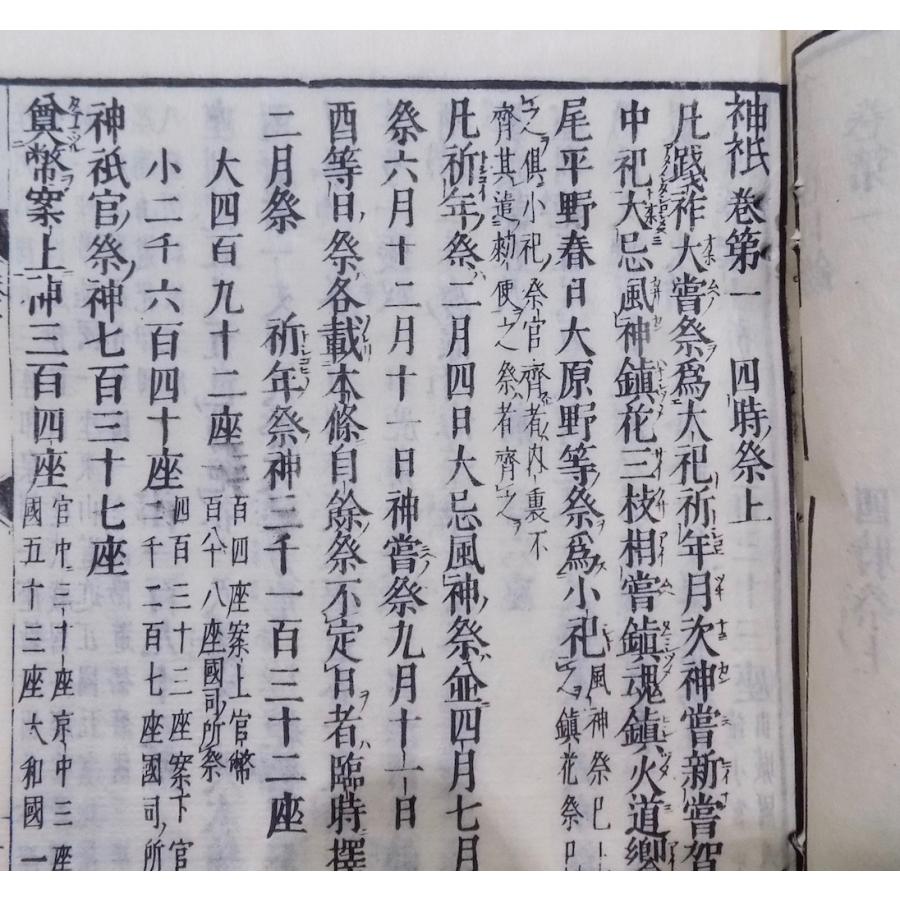 神祇卷第一 四時祭上
凡踐祚大嘗祭爲大祀祈年月次神嘗新嘗賀
中祀大忌風神鎮花三枝相嘗鎮魂鎮火道饗
尾平野春日大原野等祭爲小祀風神祭已上
鎮花祭
之俱小祀祭官齊者內裏不
齊其遣勅使之祭者齊之
凡祈年祭二月四日大忌風神祭並四月七月
祭六月十二月十一日神嘗祭九月十一日
酉等日祭各載本條自餘祭不定日者臨時擇
二月祭 祈年祭神三千一百三十二座
大四百九十二座三百四座案上官幣
百八十八座國司所祭
小二千六百四十座四百三十三座案下官
二千二百七座國司所
神祇官祭神七百三十七座
奠幣案上神三百四座宮中三十座京中三座
國五十三座大和國一